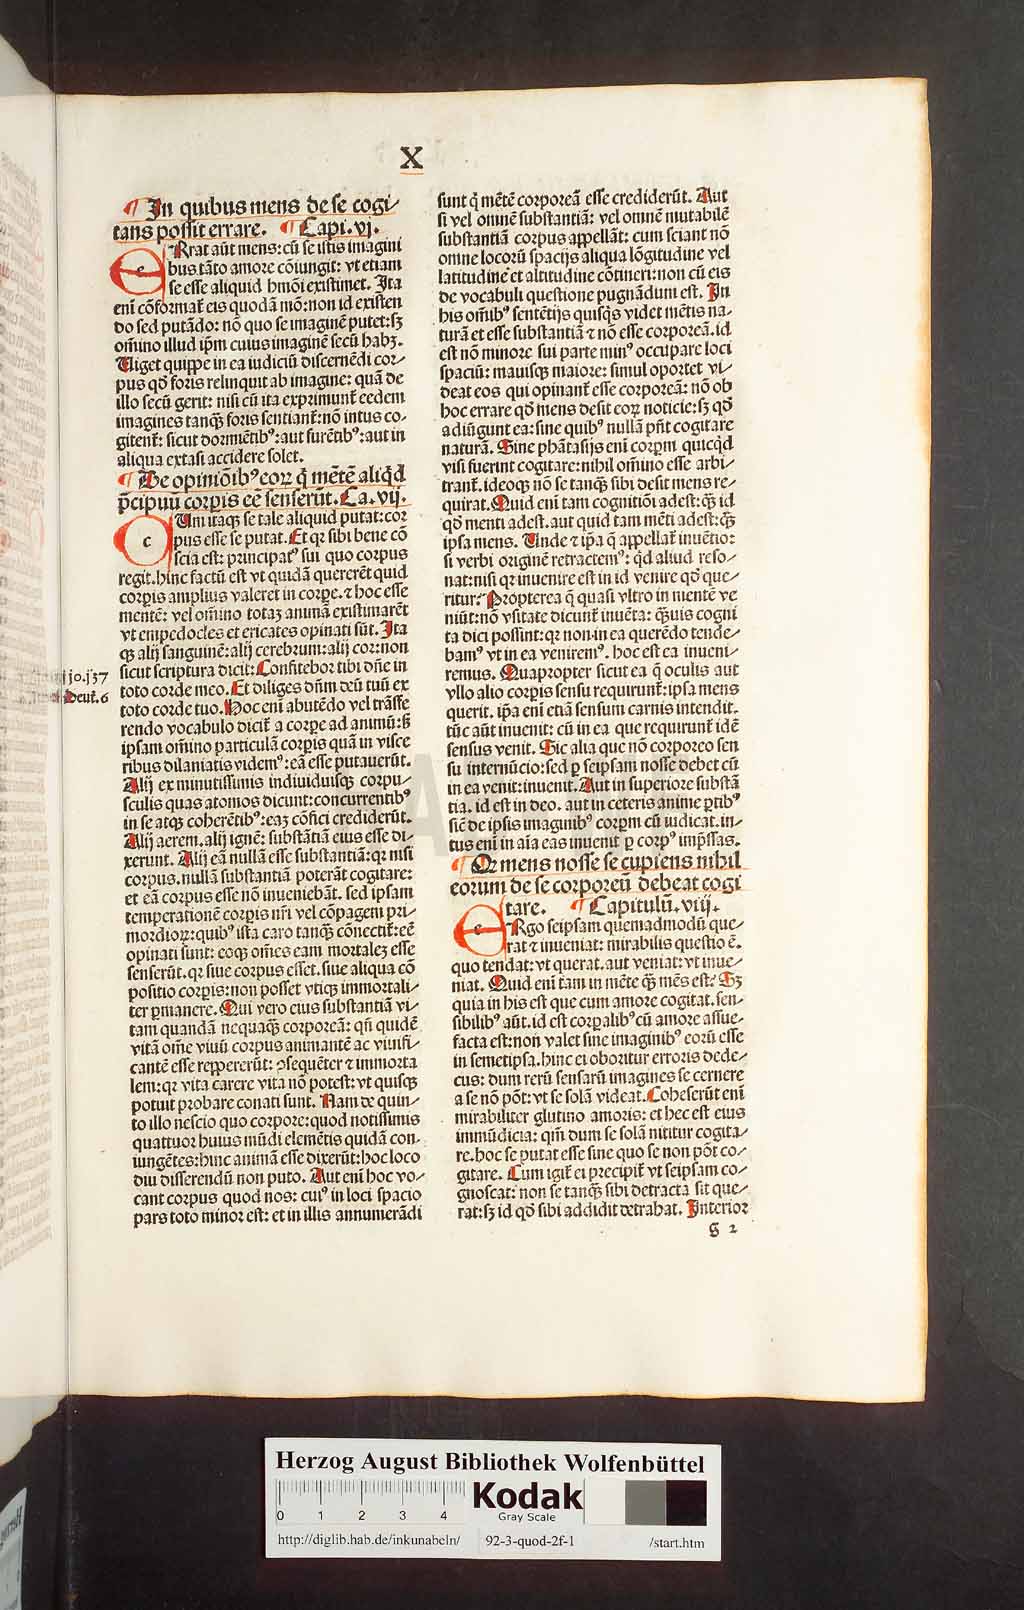 X
¶ In quibus mens de se cogi⸗
tans possit errare. ¶ Capi. vj.
e ERrat aūt mens: cū se istis imagini
bus tāto amore cōiungit: vt etiam
se esse aliquid hmōi existimet. Ita
eni cōformat᷑ eis quodā mō: non id existen
do sed putādo: nō quo se imaginē putet: sꝫ
om̄ino illud ip̄m cuius imaginē secū habꝫ.
Viget quippe in ea iudiciū discernēdi cor⸗
pus qd̄ foris relinquit ab imagine: quā de
illo secū gerit: nisi cū ita exprimunt᷑ eedem
imagines tanqꝫ foris sentiant᷑: nō intus co⸗
gitent᷑: sicut dormiētibꝰ: aut furētibꝰ: aut in
aliqua extasi accidere solet.
¶ De opiniōibꝰ eoꝝ q̄ mētē aliq̇d
p̄cipuū corꝑis eē senserūt. Ca. vij.
c CUm itaqꝫ se tale aliquid putat: cor
pus esse se putat. Et qꝛ sibi bene cō
scia est: principatꝰ sui quo corpus
regit. hinc factū est vt quidā quererēt quid
corꝑis amplius valeret in corꝑe. ⁊ hoc esse
mentē: vel om̄ino totaꝫ animā existimarēt
vt empedocles et ericates opinati sūt. Ita
qꝫ alij sanguinē: alij cerebrum: alij cor: non
sicut scriptura dicit: Confitebor tibi dn̄e in
toto corde meo. Et diliges dn̄m deū tuū ex
toto corde tuo. Hoc eni abutēdo vel trāsfe
rendo vocabulo dicit᷑ a corꝑe ad animū: sꝫ
ipsam om̄ino particulā corꝑis quā in visce
ribus dilaniatis videmꝰ: eā esse putauerūt.
Alij ex minutissimis indiuiduisqꝫ corpu⸗
sculis quas atomos dicunt: concurrentibꝰ
in se atqꝫ coherētibꝰ: eaꝫ cōfici crediderūt.
Alij aerem. alij ignē: substātiā eius esse di⸗
xerunt. Alij eā nullā esse substantiā: qꝛ nisi
corpus. nullā substantiā poterāt cogitare:
et eā corpus esse nō inueniebāt. sed ipsam
temperationē corꝑis nr̄i vel cōpagem pri⸗
mordioꝝ: quibꝰ ista caro tanqꝫ cōnectit᷑: eē
opinati sunt: eoqꝫ om̄es eam mortaleꝫ esse
senserūt. qꝛ siue corpus esset. siue aliqua cō
positio corꝑis: non posset vtiqꝫ immortali⸗
ter ꝑmanere. Qui vero eius substantiā vi⸗
tam quandā nequaqꝫ corporeā: qn̄ quidē
vitā om̄e viuū corpus animantē ac viuifi⸗
cantē esse reppererūt: ꝯsequēter ⁊ immorta
lem: qꝛ vita carere vita nō potest: vt quisqꝫ
potuit probare conati sunt. Nam de quin⸗
to illo nescio quo corpore: quod notissimis
quattuor huius mūdi elemētis quidā con⸗
iungētes: hinc animā esse dixerūt: hoc loco
diu disserendū non puto. Aut eni hoc vo⸗
cant corpus quod nos: cuiꝰ in loci spacio
pars toto minor est: et in illis annumerādi
jo. j37
Deut̄. 6
sunt q̄ mētē corporeā esse crediderūt. Aut
si vel omnē substantiā: vel omnē mutabilē
substantiā corpus appellāt: cum sciant nō
omne locorū spacijs aliqua lōgitudine vel
latitudine et altitudine cōtineri: non cū eis
de vocabuli questione pugnādum est. In
his om̄ibꝰ sentētijs quisqꝫs videt mētis na⸗
turā et esse substantiā ⁊ nō esse corporeā. id
est nō minore sui parte minꝰ occupare loci
spaciū: maiusqꝫ maiore: simul oportet vi⸗
deat eos qui opinant᷑ esse corporeā: nō ob
hoc errare qd̄ mens desit eoꝝ noticie: sꝫ qd̄
adiūgunt ea: sine quibꝰ nullā pn̄t cogitare
naturā. Sine phātasijs eni corꝑm quicq̇d
visi fuerint cogitare: nihil om̄ino esse arbi⸗
trant᷑. ideoqꝫ nō se tanqꝫ sibi desit mens re⸗
quirat. Quid eni tam cognitiōi adest: qꝫ id
qd̄ menti adest. aut quid tam mēti adest: qꝫ
ipsa mens. Unde ⁊ ip̄a q̄ appellat᷑ inuētio:
si verbi originē retractemꝰ: q̇d aliud reso⸗
nat: nisi qꝛ inuenire est in id venire qd̄ que⸗
ritur? Propterea q̄ quasi vltro in mentē ve
niūt: nō vsitate dicunt᷑ inuēta: qꝫuis cogni
ta dici possint: qꝛ non in ea querēdo tende⸗
bamꝰ vt in ea veniremꝰ. hoc est ea inueni⸗
remus. Quapropter sicut ea q̄ oculis aut
vllo alio corꝑis sensu requirunt᷑: ipsa mens
querit. ip̄a eni etiā sensum carnis intendit.
tūc aūt inuenit: cū in ea que requirunt᷑ idē
sensus venit. Sic alia que nō corporeo sen
su internūcio: sed ꝑ seipsam nosse debet cū
in ea venit: inuenit. Aut in superiore substā
tia. id est in deo. aut in ceteris anime ꝑtibꝰ
sic̄ de ipsis imaginibꝰ corꝑm cū iudicat. in⸗
tus eni in aīa eas inuenit ꝑ corpꝰ imp̄ssas.
¶ Qꝛ mens nosse se cupiens nihil
eorum de se corporeū debeat cogi
tare. ¶ Capitulū. viij.
e ERgo seipsam quemadmodū que⸗
rat ⁊ inueniat: mirabilis questio ē.
quo tendat: vt querat. aut veniat: vt inue⸗
niat. Quid eni tam in mēte qꝫ mēs est? Sꝫ
quia in his est que cum amore cogitat. sen⸗
sibilibꝰ aūt. id est corꝑalibꝰ cū amore assue⸗
facta est: non valet sine imaginibꝰ eorū esse
in semetipsa. hinc ei oboritur erroris dede⸗
cus: dum rerū sensarū imagines secernere
a se nō pōt: vt se solā videat. Coheserūt eni
mirabiliter glutino amoris: et hec est eius
immūdicia: qm̄ dum se solā nititur cogita⸗
re. hoc se putat esse sine quo se non pōt co⸗
gitare. Cum igit᷑ ei precipit᷑ vt seipsam co⸗
gnoscat: non se tanqꝫ sibi detracta sit que⸗
rat: sꝫ id qd̄ sibi addidit detrahat. Interior
g 2
HAB
Herzog August Bibliothek Wolfenbüttel
0 1 2 3 4
Kodak
Gray Scale
http://diglib.hab.de/inkunabeln/ 92-3-quod-2f-1 /start.htm